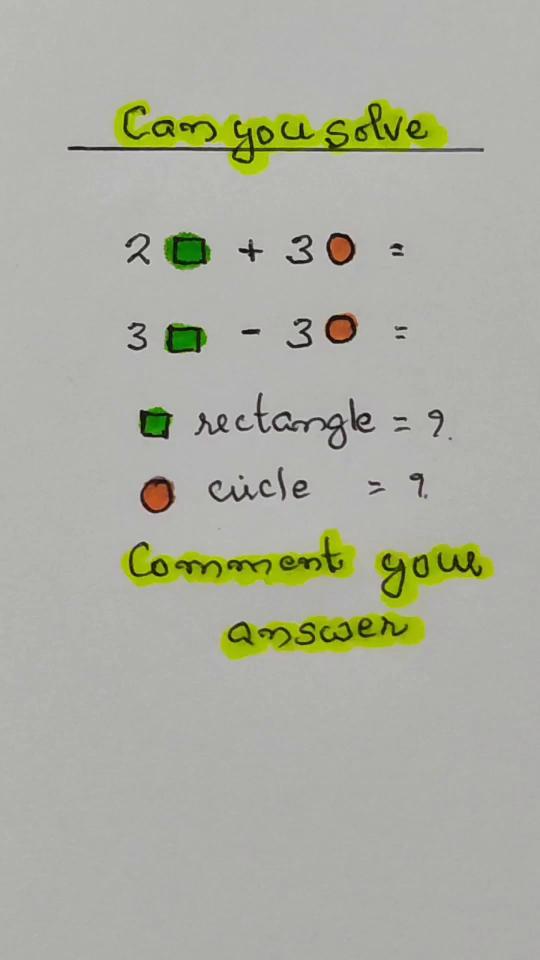 Can you solve
2 + 3 =
3 - 3 =
rectangle = ?
circle = ?
Comment your
answer